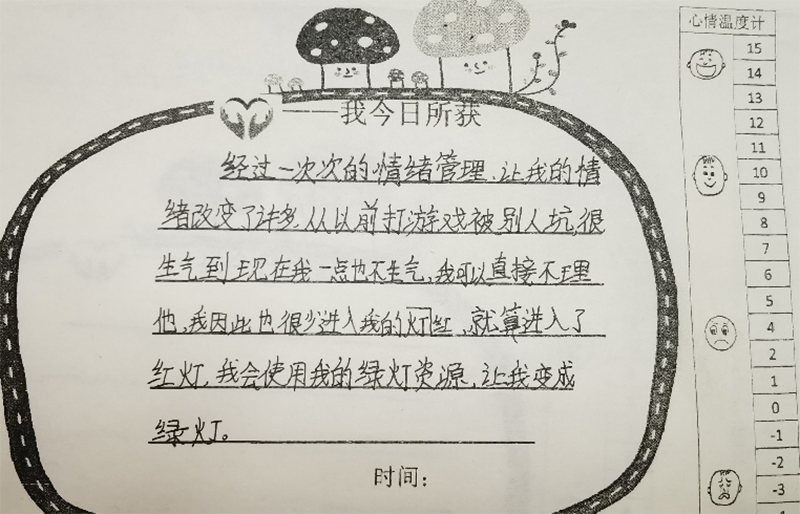 ——我今日所获
经过一次次的情绪管理、让我的情
绪改变了许多、从以前打游戏被别人坑，很
生气到现在我一点也不生气，我可以直接不理
他，我因此也很少进入我的灯红，就算进入了
红灯，我会使用我的绿灯资源，让我变成
绿灯。
时间：
心情温度计
15
14
13
12
11
10
9
8
7
6
5
4
2
1
0
-1
-2
-3